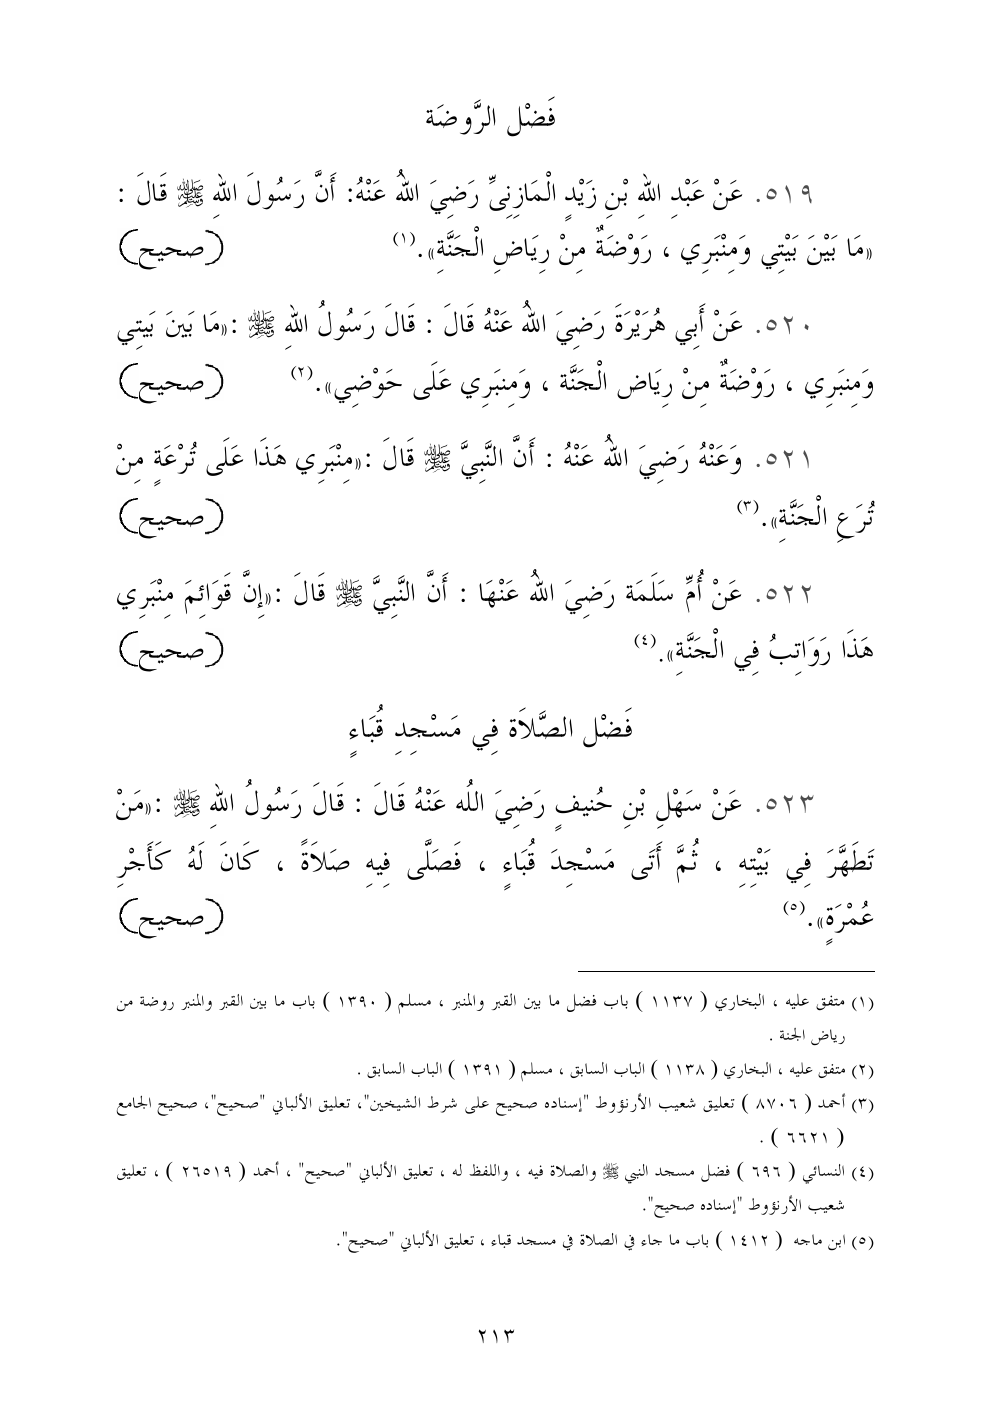 فَضْل الرَّوضَة
٥١٩. عَنْ عَبْدِ اللهِ بْنِ زَيْدٍ الْمَازِنِىِّ رَضِيَ اللهُ عَنْهُ: أَنَّ رَسُولَ اللهِ ﷺ قَالَ :
«مَا بَيْنَ بَيْتِي وَمِنْبَرِي ، رَوْضَةٌ مِنْ رِيَاضِ الْجَنَّةِ».(١) (صحيح)
٥٢٠. عَنْ أَبِي هُرَيْرَةَ رَضِيَ اللهُ عَنْهُ قَالَ : قَالَ رَسُولُ اللهِ ﷺ :«مَا بَينَ بَيتِي
وَمِنبَرِي ، رَوْضَةٌ مِنْ رِيَاض الْجَنَّة ، وَمِنبَرِي عَلَى حَوْضِي».(٢) (صحيح)
٥٢١. وَعَنْهُ رَضِيَ اللهُ عَنْهُ : أَنَّ النَّبِيَّ ﷺ قَالَ :«مِنْبَرِي هَذَا عَلَى تُرْعَةٍ مِنْ
تُرَعِ الْجَنَّةِ».(٣) (صحيح)
٥٢٢. عَنْ أُمِّ سَلَمَة رَضِيَ اللهُ عَنْهَا : أَنَّ النَّبِيَّ ﷺ قَالَ :«إِنَّ قَوَائِمَ مِنْبَرِي
هَذَا رَوَاتِبُ فِي الْجَنَّةِ».(٤) (صحيح)
فَضْل الصَّلاَة فِي مَسْجِدِ قُبَاءٍ
٥٢٣. عَنْ سَهْلِ بْنِ حُنيفٍ رَضِيَ اللُه عَنْهُ قَالَ : قَالَ رَسُولُ اللهِ ﷺ :«مَنْ
تَطَهَّرَ فِي بَيْتِهِ ، ثُمَّ أَتَى مَسْجِدَ قُبَاءٍ ، فَصَلَّى فِيهِ صَلاَةً ، كَانَ لَهُ كَأَجْرِ
عُمْرَةٍ».(٥) (صحيح)
(١) متفق عليه ، البخاري ( ١١٣٧ ) باب فضل ما بين القبر والمنبر ، مسلم ( ١٣٩٠ ) باب ما بين القبر والمنبر روضة من
رياض الجنة .
(٢) متفق عليه ، البخاري ( ١١٣٨ ) الباب السابق ، مسلم ( ١٣٩١ ) الباب السابق .
(٣) أحمد ( ٨٧٠٦ ) تعليق شعيب الأرنؤوط "إسناده صحيح على شرط الشيخين"، تعليق الألباني "صحيح"، صحيح الجامع
( ٦٦٢١ ) .
(٤) النسائي ( ٦٩٦ ) فضل مسجد النبي ﷺ والصلاة فيه ، واللفظ له ، تعليق الألباني "صحيح" ، أحمد ( ٢٦٥١٩ ) ، تعليق
شعيب الأرنؤوط "إسناده صحيح".
(٥) ابن ماجه ( ١٤١٢ ) باب ما جاء في الصلاة في مسجد قباء ، تعليق الألباني "صحيح".
٢١٣